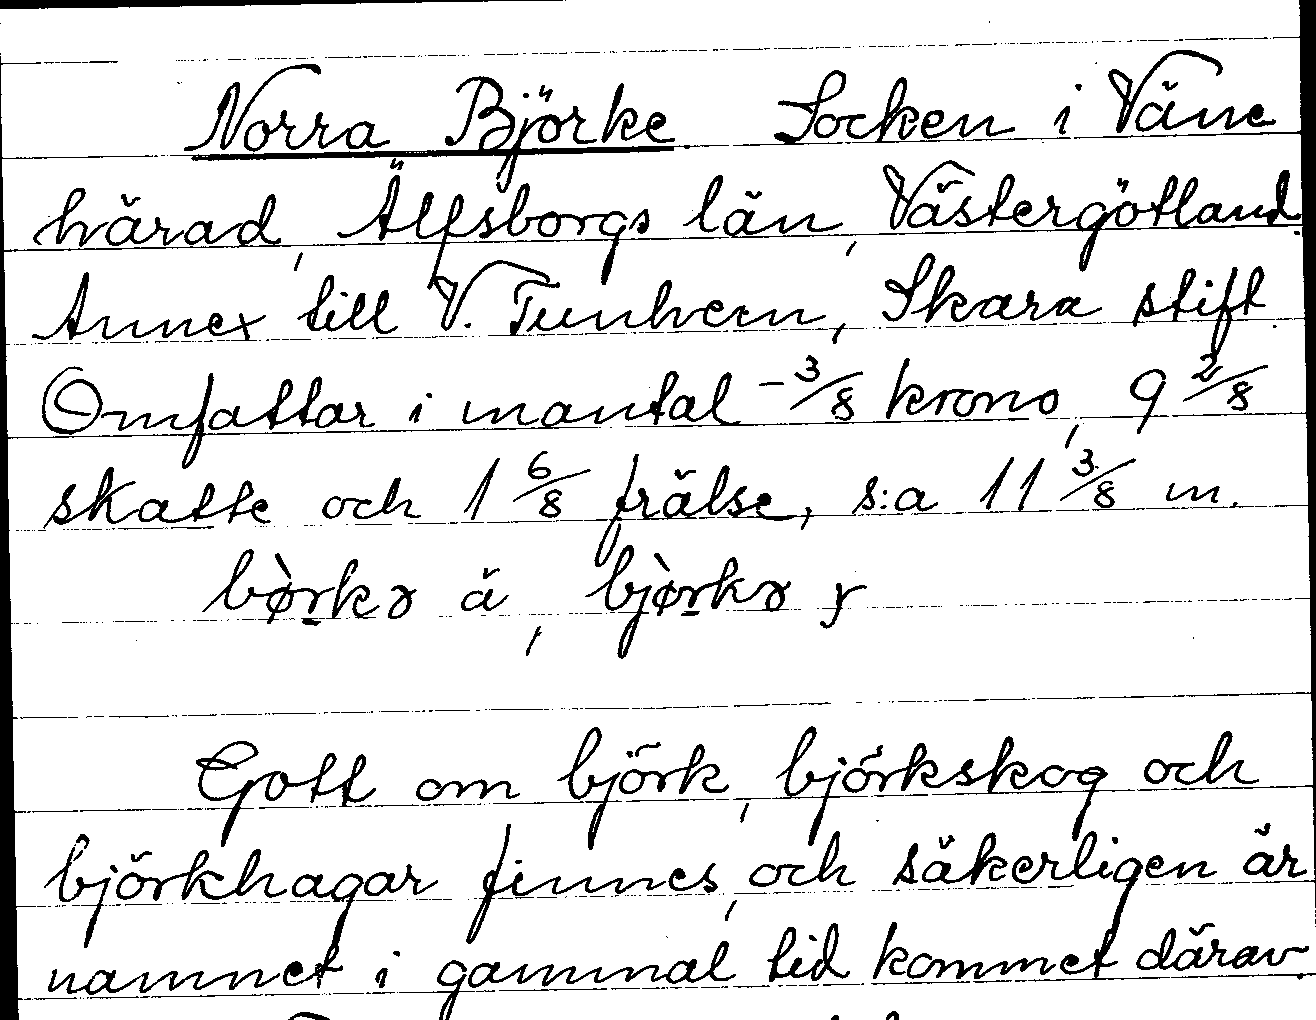 Norra Björke Socken i Väne
härad, Älfsborgs län, Västergötland.
Annex till V. Tunhem, Skara stift.
Omfattar i mantal - 3/8 krono, 9 2/8
skatte och 1 6/8 frälse, s:a 11 3/8 m.
bø̀rkɤ ä, bjø̀rkɤ y
Gott om björk, björkskog och
björkhagar finnes, och säkerligen är
namnet i gammal tid kommet därav.